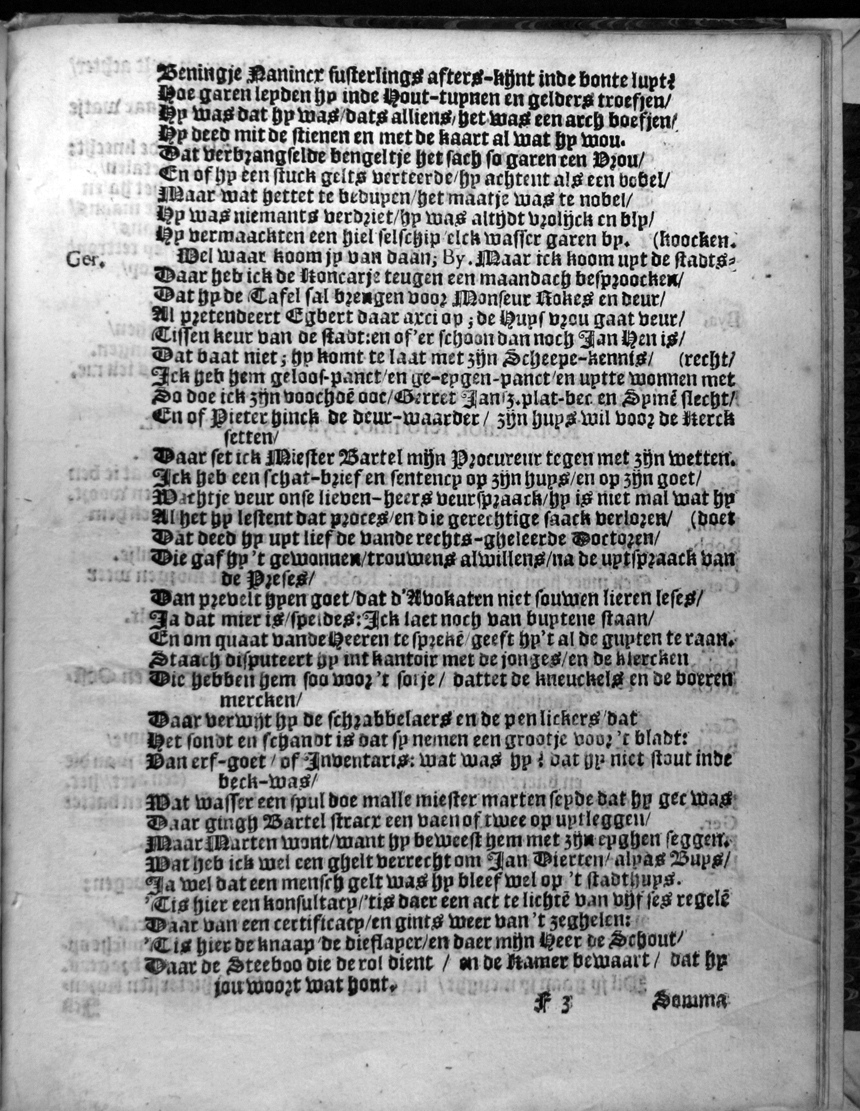 Beningje Nanincx susterlings afters-kijnt inde bonte luyt?
Hoe garen leyden hy inde Hout-tuynen en gelders troefjen/
Hy was dat hy was/dats alliens/het was een arch boefjen/
Hy deed mit de stienen en met de kaart al wat hy wou.
Dat verbrangselde bengeltje het sach so garen een Vrou/
En of hy een stuck gelts verteerde/hy achtent als een vobel/
Maar wat hettet te beduyen/het maatje was te nobel/
Hy was niemants verdriet/hy was altijdt vrolijck en bly/
Hy vermaackten een hiel selschip/elck wasser garen by. (koocken.
Ger. Wel waar koom jy van daan; By. Maar ick koom uyt de stadts-
Daar heb ick de Koncarje teugen een maandach besproocken/
Dat hy de Tafel sal brengen voor Monseur Kokes en deur/
Al pretendeert Egbert daar axci op; de Huys vrou gaat veur/
Tissen keur van de stadt: en of'er schoon dan noch Jan Hen is/
Dat baat niet; hy komt te laat met zijn Scheepe-kennis/ (recht/
Ick heb hem geloof-panct/en ge-eygen-panct/en uytte wonnen met
So doe ick zijn voochdē ooc/Gerret Jansz. plat-bec en Symē slecht/
En of Pieter hinck de deur-waarder/ zijn huys wil voor de Kerck
setten/
Daar set ick Miester Bartel mijn Procureur tegen met zijn wetten.
Ick heb een schat-brief en sentency op zijn huys/en op zijn goet/
Wachtje veur onse lieven-heers veurspraack/hy is niet mal wat hy
Al het hy lestent dat proces/en die gerechtige saack verloren/ (doet
Dat deed hy uyt lief de vande rechts-gheleerde Doctoren/
Die gaf hy 't gewonnen/trouwens alwillens/na de uytspraack van
de Preses/
Dan prevelt hy en goet/dat d'Avokaten niet souwen lieren leses/
Ja dat mier is/speldes: Ick laet noch van buytene staan/
En om quaat vande Heeren te sprekē/geeft hy't al de guyten te raan.
Staach disputeert hy int kantoir met de jonges/en de klercken
Die hebben hem soo voor 't sotje/ dattet de kneuckels en de boeren
mercken/
Daar verwijt hy de schrabbelaers en de penlickers/dat
Het sondt en schandt is dat sy nemen een grootje voor 't bladt:
Van erf-goet/ of Inventaris: wat was hy? dat hy niet stout inde
beck-was/
Wat wasser een spul doe malle miester marten seyde dat hy gec was
Daar gingh Bartel stracx een vaen of twee op uytleggen/
Maar Marten wont/want hy beweest hem met zijn eyghen seggen.
Wat heb ick wel een ghelt verrecht om Jan Dierten/alyas Buys/
Ja wel dat een mensch gelt was hy bleef wel op 't stadthuys.
'Tis hier een konsultacy/'tis daer een act te lichtē van vijf ses regelē
Daar van een certificacy/en gints weer van 't zeghelen:
'Tis hier de knaap/de dieflayer/en daer mijn Heer de Schout/
Daar de Steeboo die de rol dient / en de Kamer bewaart/ dat hy
jou woort wat hout.
F 3 Somma